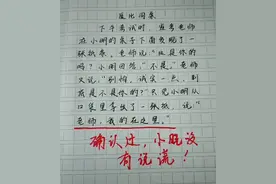 下午考试时，监考老师
在小明的桌子下面发现了一
张纸条，老师说"这是你的
吗？小明回答，"不是。"老师
又说，"别怕，诚实一点，到
底是不是你的？"只见小明从
口袋里拿出了一张纸，说"
老师，我的在这里。"
确认过，小明没
有说谎！